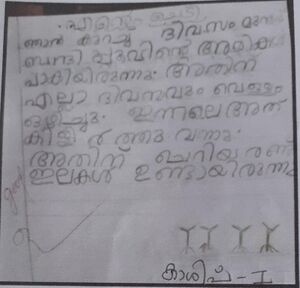 എന്റെ ചെടി
ഞാൻ കുറച്ചു ദിവസം മുമ്പ്
ബന്ദി പൂവിന്റെ അരികൾ
പാകിയിരുന്നു. അതിന്
എല്ലാ ദിവസവും വെള്ളം
ഒഴിച്ചു. ഇന്നലെ അത്
കിളിർത്തു വന്നു.
അതിന് ചെറിയ രണ്ട്
ഇലകൾ ഉണ്ടായിരുന്നു
good
- I